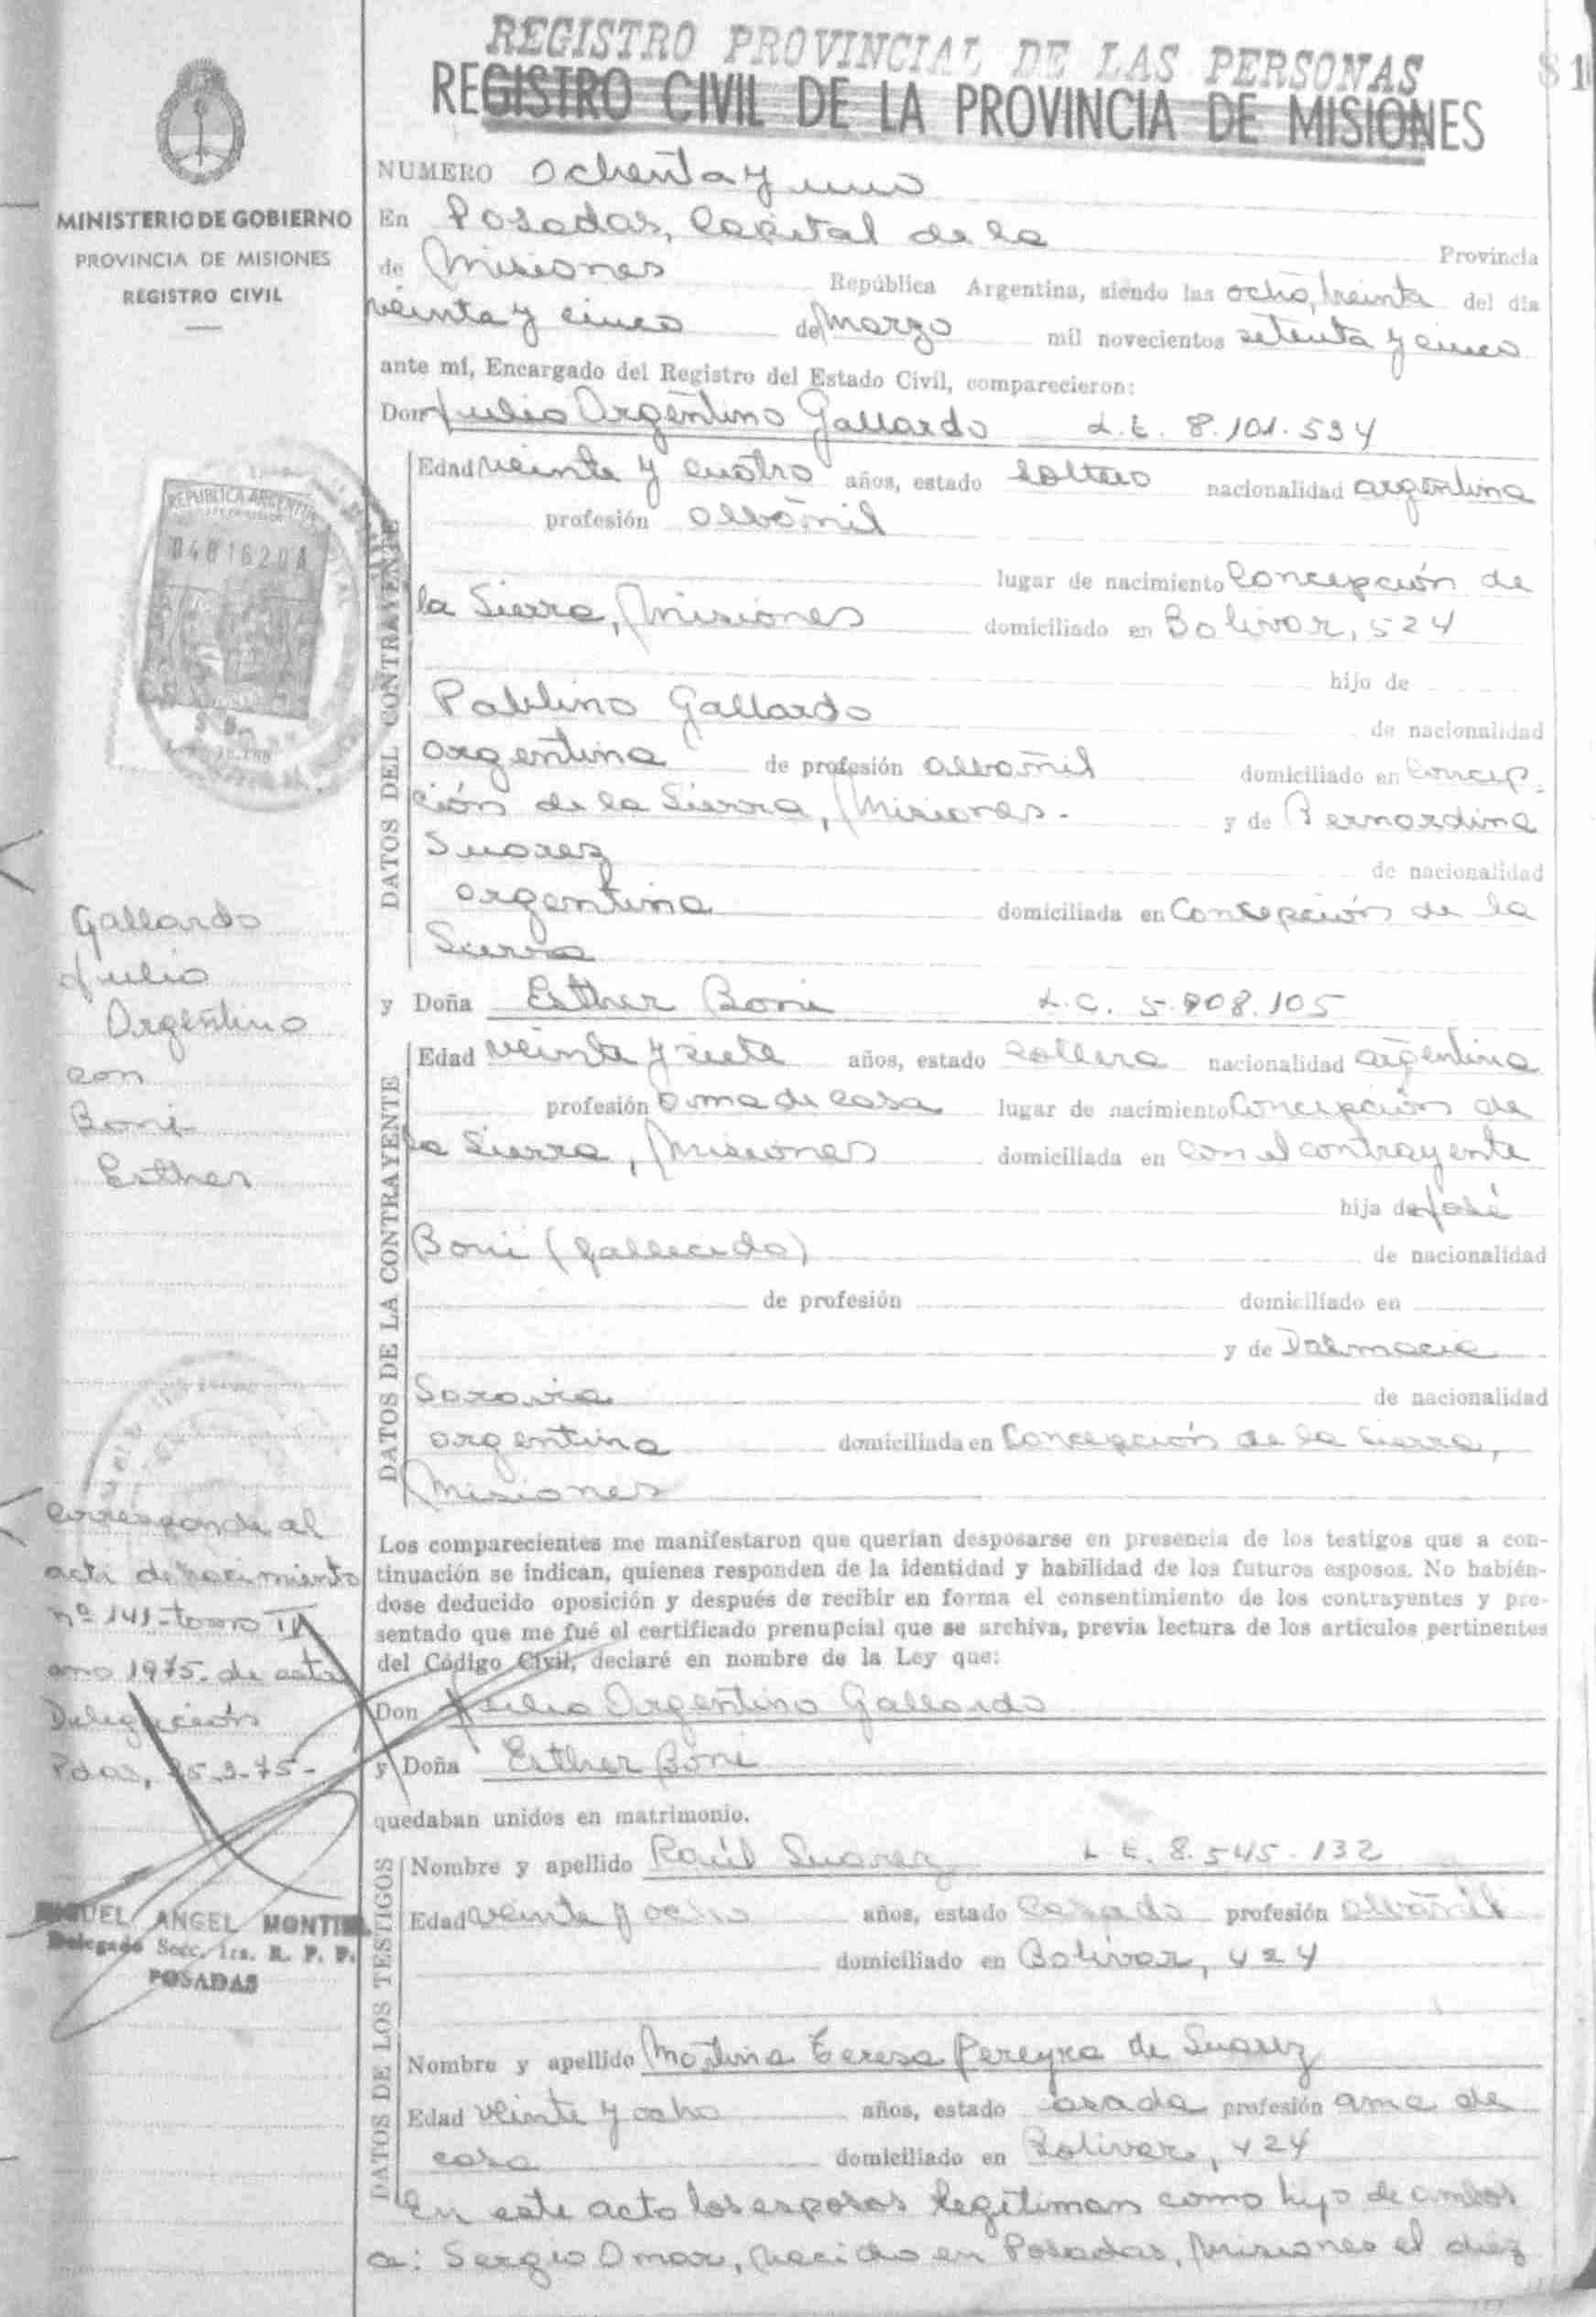 REGISTRO PROVINCIAL DE LAS PERSONAS
REGISTRO CIVIL DE LA PROVINCIA DE MISIONES
81
MINISTERIO DE GOBIERNO
PROVINCIA DE MISIONES
REGISTRO CIVIL
NUMERO Ochenta y uno
En Posadas, Capital de la Provincia
de Misiones República Argentina, siendo las ocho, treinta del día
veinta y cinco de Marzo mil novecientos setenta y cinco
ante mí, Encargado del Registro del Estado Civil, comparecieron:
Don Julio Argentino Gallardo L.E. 8.101.534
DATOS DEL CONTRAYENTE
Edad veinte y cuatro años, estado soltero nacionalidad argentina
profesión albañil
lugar de nacimiento Concepción de
la Sierra, Misiones domiciliado en Bolivar, 524
hijo de
Pablino Gallardo de nacionalidad
argentina de profesión albañil domiciliado en Concep-
ción de la Sierra, Misiones.- y de Bernardina
Suarez de nacionalidad
argentina domiciliada en Concepción de la
Sierra
y Doña Esther Boni L.C. 5.908.105
DATOS DE LA CONTRAYENTE
Edad veinta y siete años, estado soltera nacionalidad argentina
profesión ama de casa lugar de nacimiento Concepción de
la Sierra, Misiones domiciliada en con el contrayente
hija de José
Boni (fallecido) de nacionalidad
de profesión domiciliado en
y de Dalmacia
Saravia de nacionalidad
argentina domiciliada en Concepción de la Sierra,
Misiones
Los comparecientes me manifestaron que querían desposarse en presencia de los testigos que a con-
tinuación se indican, quienes responden de la identidad y habilidad de los futuros esposos. No habién-
dose deducido oposición y después de recibir en forma el consentimiento de los contrayentes y pre-
sentado que me fué el certificado prenupcial que se archiva, previa lectura de los artículos pertinentes
del Código Civil, declaré en nombre de la Ley que:
Don Julio Argentino Gallardo
y Doña Esther Boni
quedaban unidos en matrimonio.
DATOS DE LOS TESTIGOS
Nombre y apellido Raúl Suarez L.E. 8.545.132
Edad veinte y ocho años, estado casado profesión albañil
domiciliado en Bolivar, 424
Nombre y apellido Martina Teresa Pereyra de Suarez
Edad veinte y ocho años, estado casada profesión ama de
casa domiciliado en Bolivar, 424
En este acto los esposos legitiman como hijo de ambos
a: Sergio Omar, nacido en Posadas, Misiones el diez
REPUBLICA ARGENTINA
Gallardo
Julio
Argentino
con
Boni
Esther
Corresponde al
acta de nacimiento
nº 141-tomo
año 1975. de esta
Delegación
Pdas, 25-3-75-
MIGUEL ANGEL MONTIEL
Delegado Secc. 1ra. R. P. P.
POSADAS